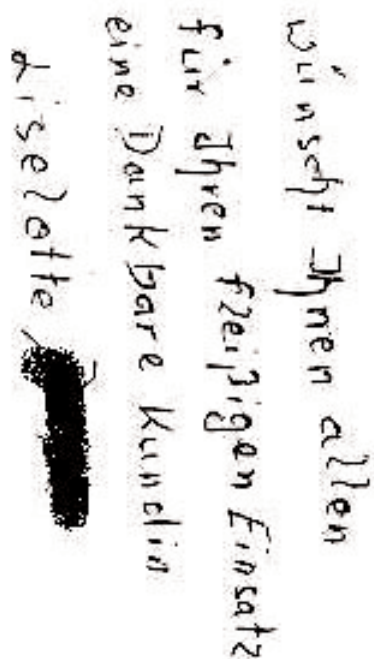 wünscht Ihnen allen
für Ihren fleißigen Einsatz
eine Dankbare Kundin
Liselotte